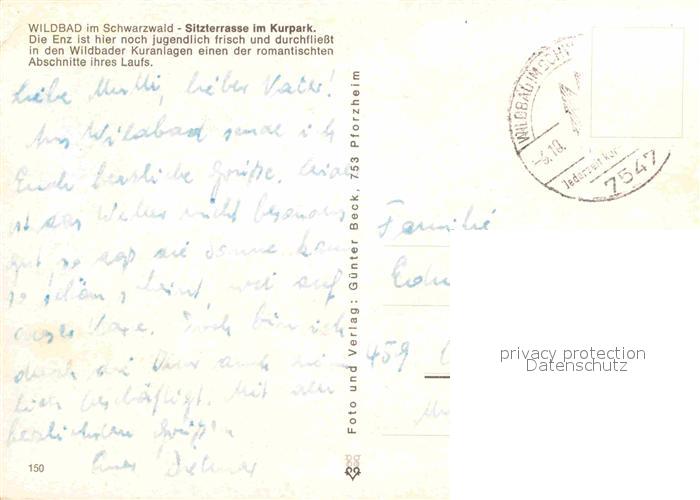 WILDBAD im Schwarzwald - Sitzterrasse im Kurpark.
Die Enz ist hier noch jugendlich frisch und durchfließt
in den Wildbader Kuranlagen einen der romantischten
Abschnitte ihres Laufs.
Liebe Mutti, lieber Vater!
Aus Wildbad sende ich
Euch herzliche Grüße. Leider
ist das Wetter nicht besonders
gut, so daß die Sonne kaum
so schön, scheint, wie auf
Doch bin ich
durch die Kur auch
lich beschäftigt. Mit allen
herzlichsten Grüßen
Euer Dietmar
150
Foto und Verlag: Günter Beck, 753 Pforzheim
WILDBAD IM SCHW
-6.10.
Jederzeit Kur
7547
Familie
459
privacy protection
Datenschutz